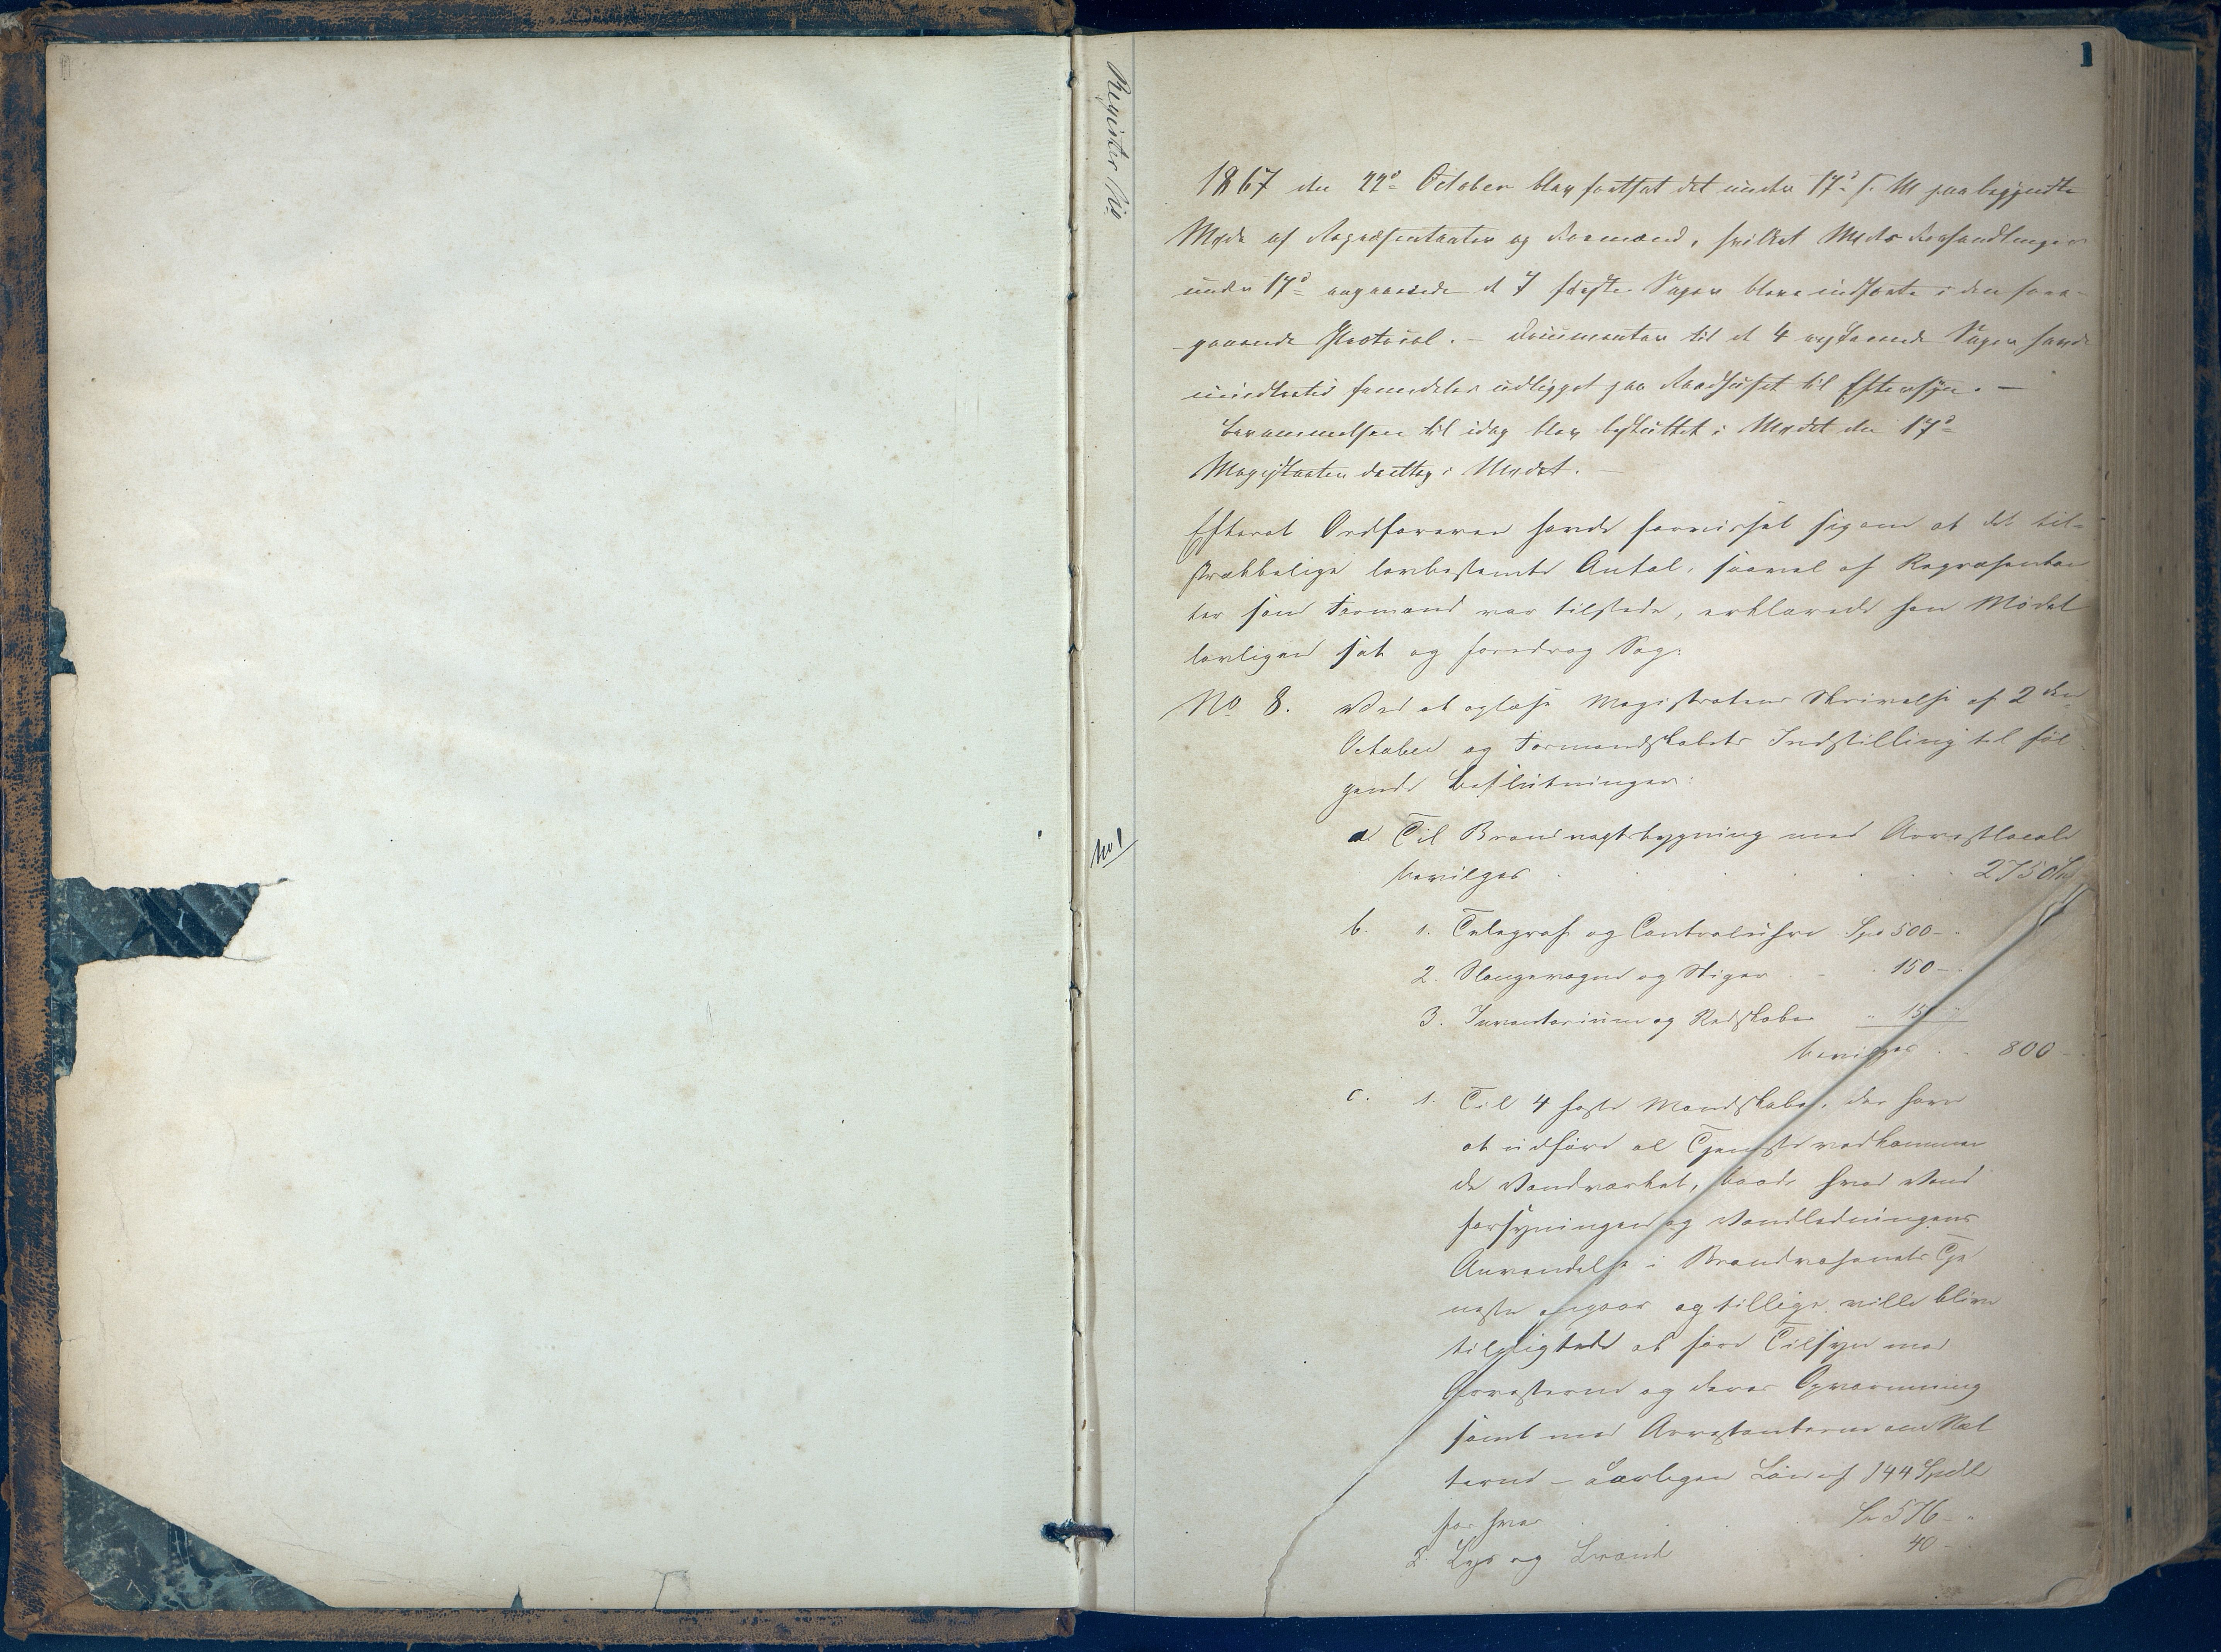 1
Register No
1867 den 22d October blev fortsat det under 17d s. M paabegyndte
Møde af Repræsentanter og Formænd, hvilket Møds Forhandlinger
under 17d angaaende de 7 første Sager blev indførte i den fore-
gaaende Protocol. – Documenter til de 4 resterende Sager havde
imidlertid fremdeles udligget paa Raadhuset til Eftersyn. –
Berammelsen til idag blev besluttet i Mødet den 17d
Magistraten deeltog i Mødet. –
Efterat Ordføreren havde forvisset sig om at det til-
strækkelige lovbestemte Antal, saavel af Repræsentan
ter som Formænd var tilstede, erklærede han Mødet
lovligen sat og foredrog Sag:
No 8. Ved at oplæse Magistratens Skrivelse af 2den
October og Formandskabets Indstilling til føl
gende Beslutninger:
No 1
a. Til Brandvagtbygning med Arrestlocale
bevilges 2750
b. 1. Telegraf og Controluhre Spd 500 –
2. Slangevogne og Stiger 150 –
3. Inventarium og Redskaber " 150 "
bevilges 800 –
c. 1. Til 4 faste Mandskaber, der have
at udføre al Tjeneste vedkommen
de Vandværket, baade hvad Vand
forsyningen og Vandledningens
Anvendelse i Brandvæsenets Tje
neste angaar og tillige ville blive
tilpligtede at føre Tilsyn med
Arresterne og deres Opvarmning
samt med Arrestanterne om Næt
terne – aarligen Løn af 144 Spdl
for hver Sp 576 –
2. Lys og Brænde 40 –